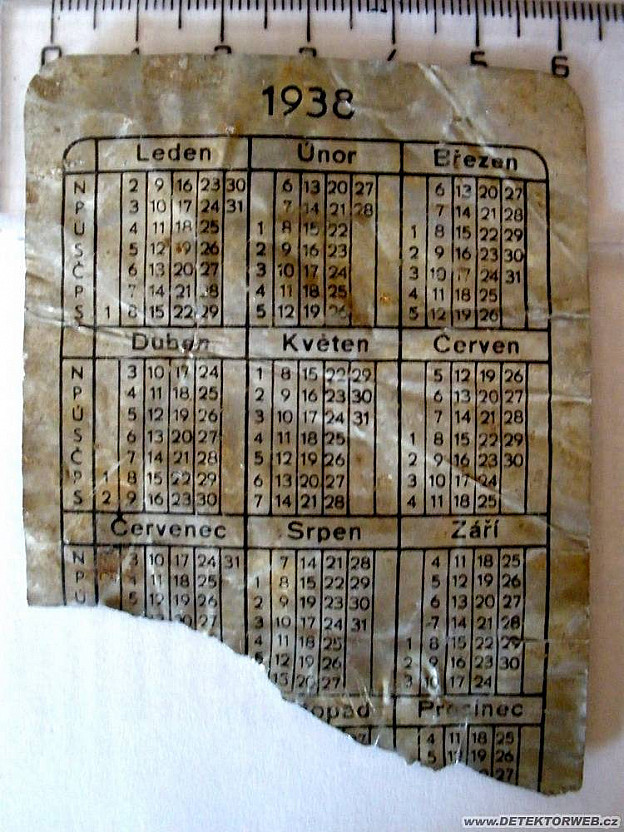 0 1 2 3 4 5 6
1938
Leden Únor Březen
N 2 9 16 23 30 6 13 20 27 6 13 20 27
P 3 10 17 24 31 7 14 21 28 7 14 21 28
Ú 4 11 18 25 1 8 15 22 1 8 15 22 29
S 5 12 19 26 2 9 16 23 2 9 16 23 30
Č 6 13 20 27 3 10 17 24 3 10 17 24 31
P 7 14 21 28 4 11 18 25 4 11 18 25
S 1 8 15 22 29 5 12 19 26 5 12 19 26
Duben Květen Červen
N 3 10 17 24 1 8 15 22 29 5 12 19 26
P 4 11 18 25 2 9 16 23 30 6 13 20 27
Ú 5 12 19 26 3 10 17 24 31 7 14 21 28
S 6 13 20 27 4 11 18 25 1 8 15 22 29
Č 7 14 21 28 5 12 19 26 2 9 16 23 30
P 1 8 15 22 29 6 13 20 27 3 10 17 24
S 2 9 16 23 30 7 14 21 28 4 11 18 25
Červenec Srpen Září
N 3 10 17 24 31 7 14 21 28 4 11 18 25
P 4 11 18 25 1 8 15 22 29 5 12 19 26
Ú 5 12 19 26 2 9 16 23 30 6 13 20 27
27 3 10 17 24 31 7 14 21 28
4 11 18 25 1 8 15 22 29
5 12 19 26 2 9 16 23 30
13 20 27 3 10 17 24
topad Prosinec
27 4 11 18 25
5 12 19 26
27
www.DETEKTORWEB.cz